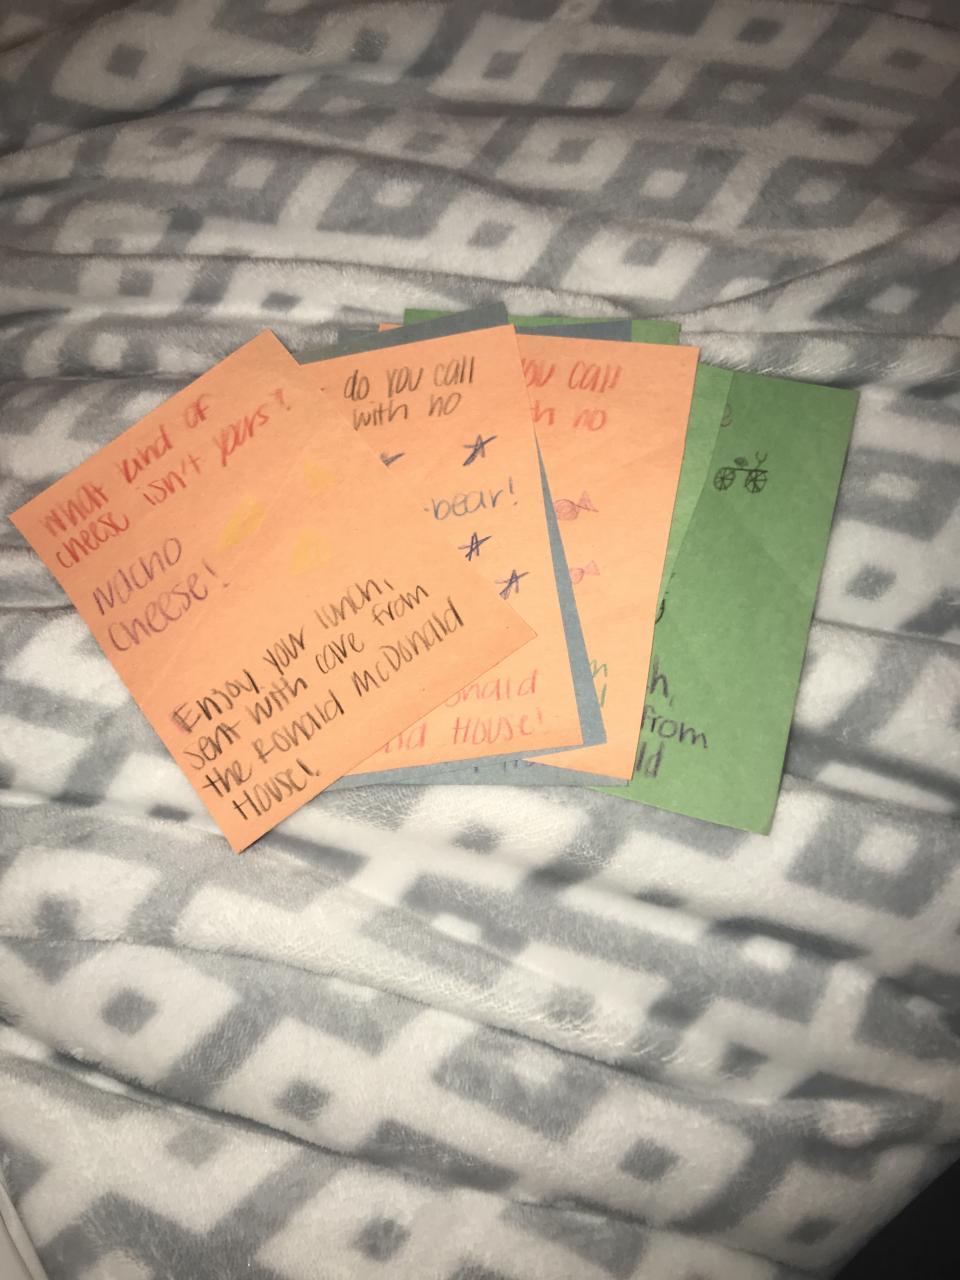 What kind of
cheese isn't yours?
Nacho
cheese!
Enjoy your lunch,
sent with care from
the Ronald McDonald
House!
do you call
with no
bear!
House!
ou call
no
from